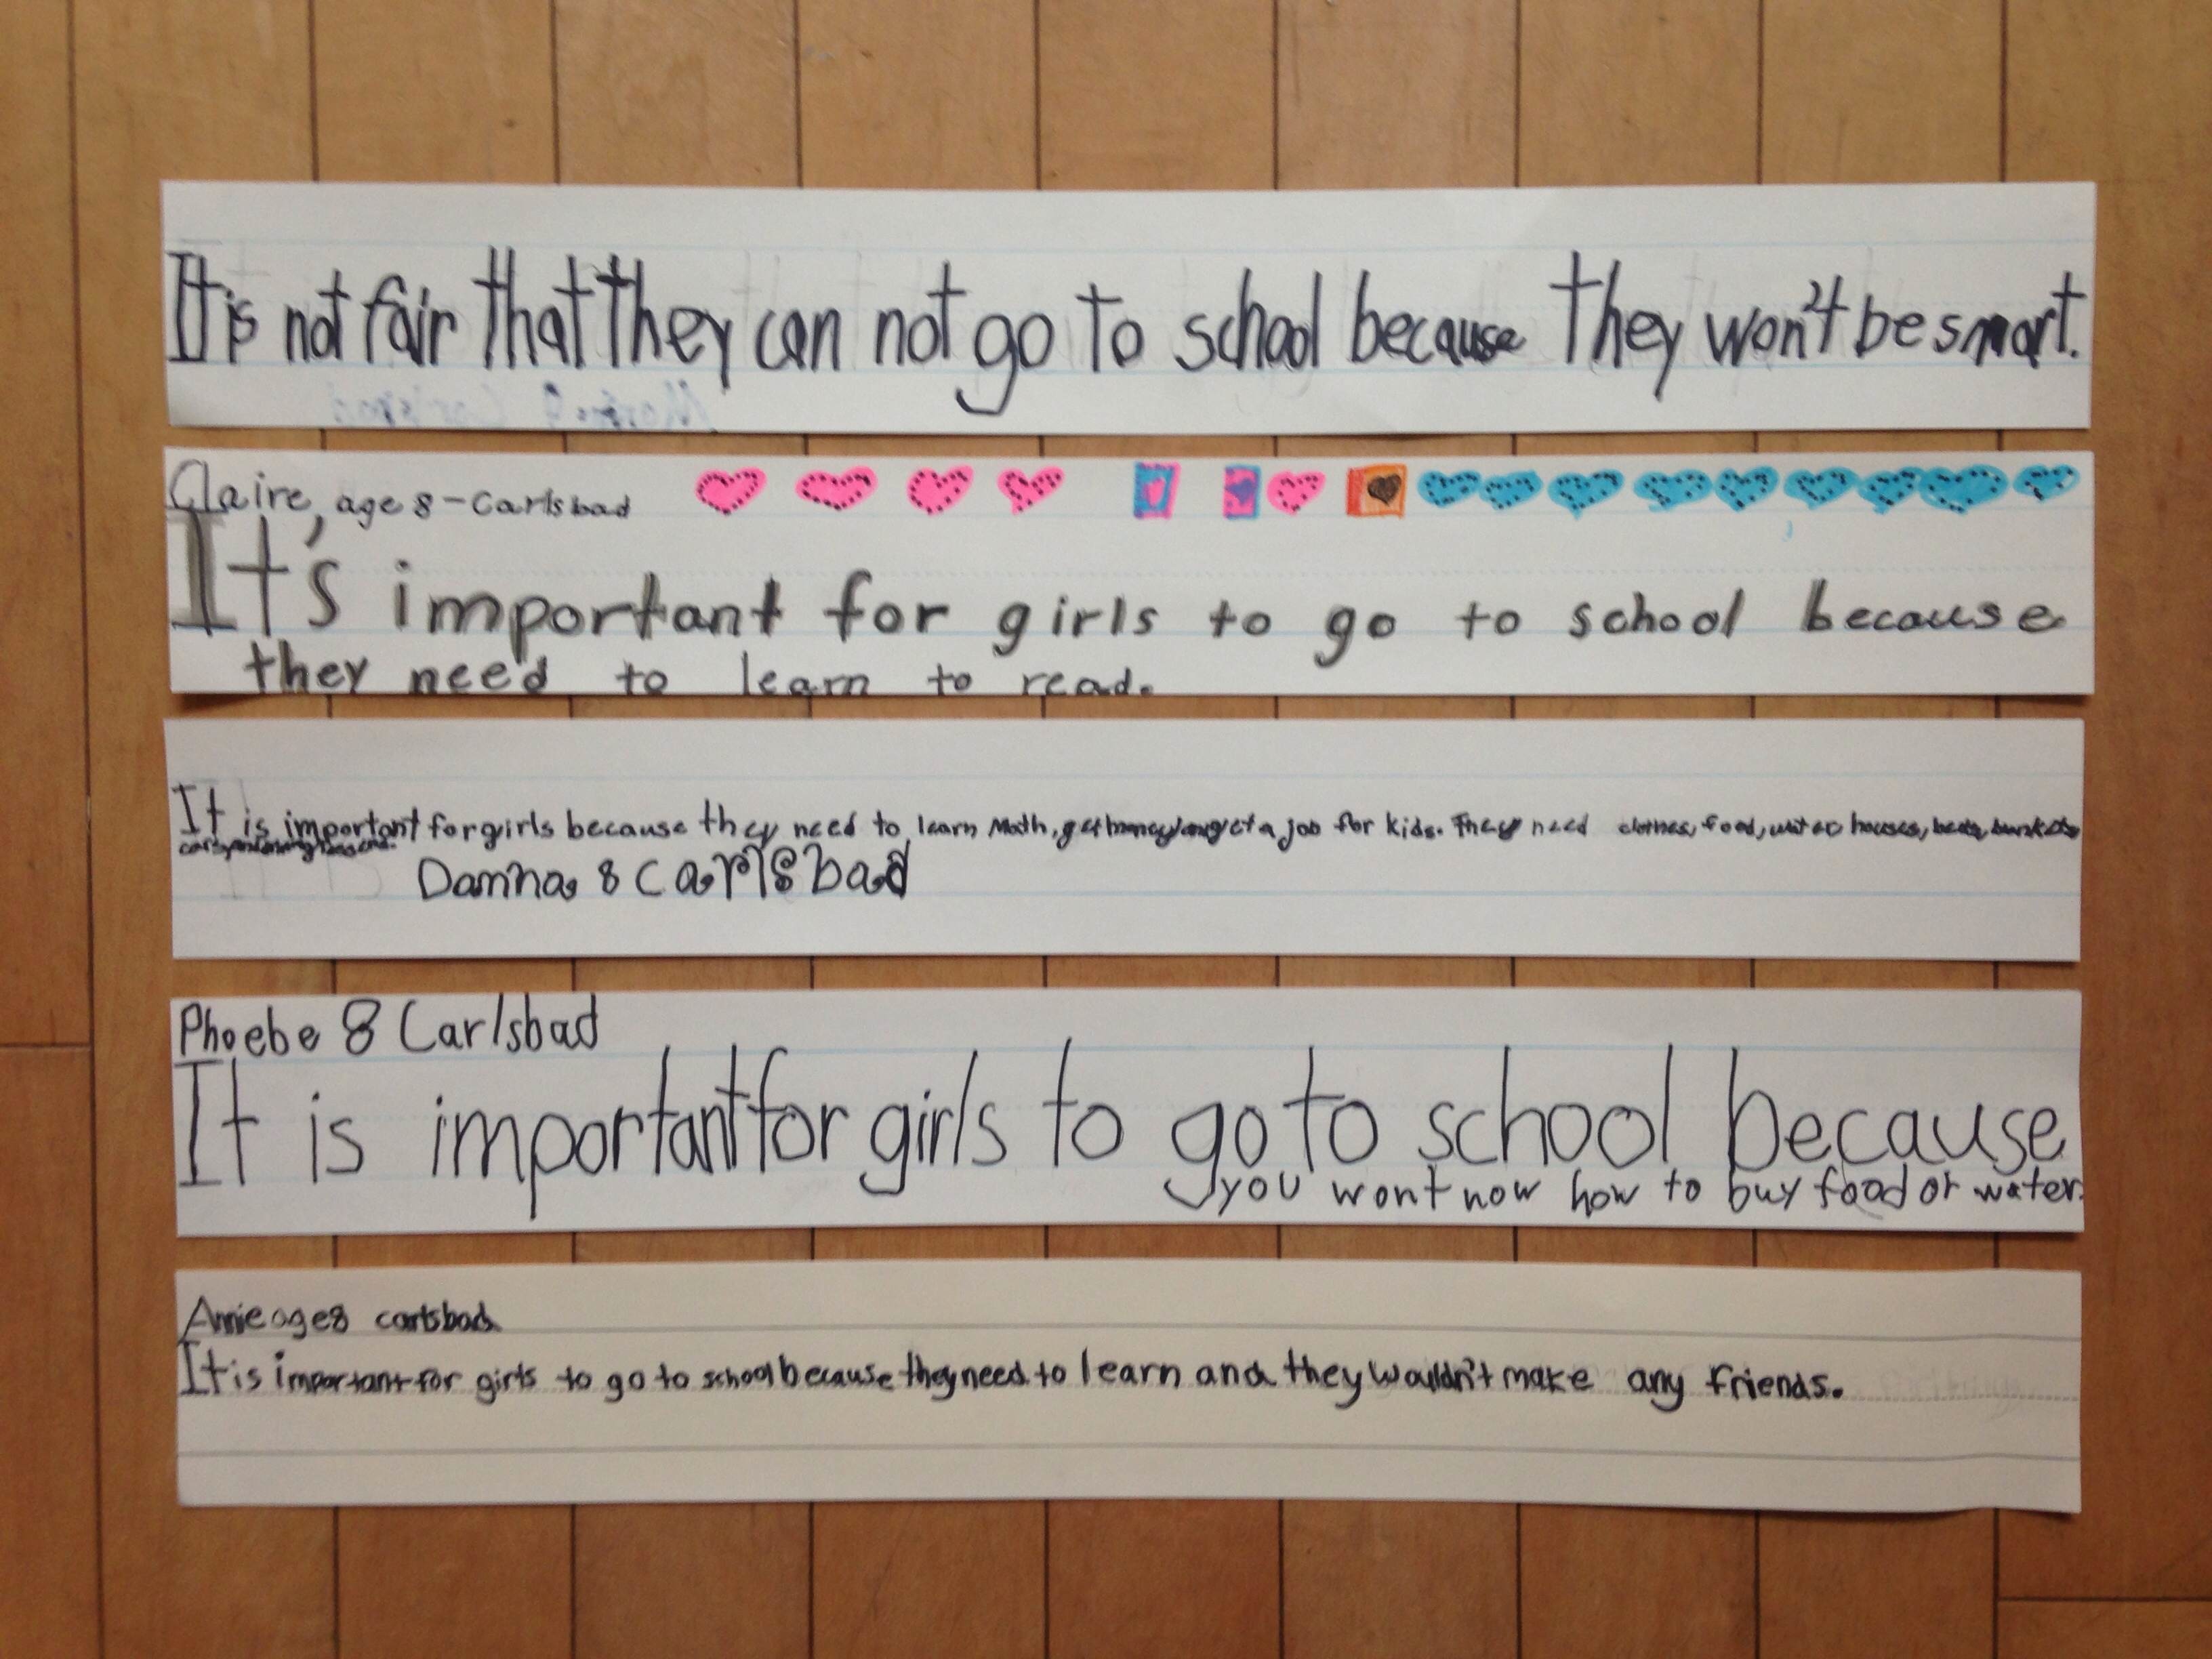 It is not fair that they can not go to school because they won't be smart.
Claire, age 8 - Carlsbad
It's important for girls to go to school because
they need to learn to read.
It is important for girls because they need to learn Math, get money, get a job for kids. They need clothes, food, water houses, beds,
Danna 8 Carlsbad
Phoebe 8 Carlsbad
It is important for girls to go to school because
you wont now how to buy food or water.
Annie age 8 carlsbad
It is important for girls to go to school because they need to learn and they wouldn't make any friends.